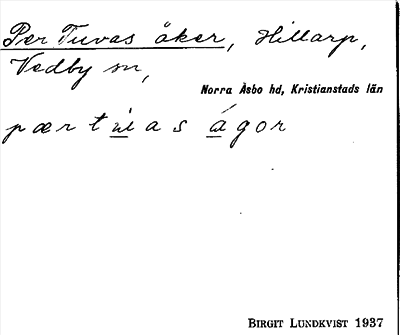 Per Tuvas åker, Hillarp,
Vedby sn,
Norra Åsbo hd, Kristianstads län
pær t as ágor
BIRGIT LUNDKVIST 1937